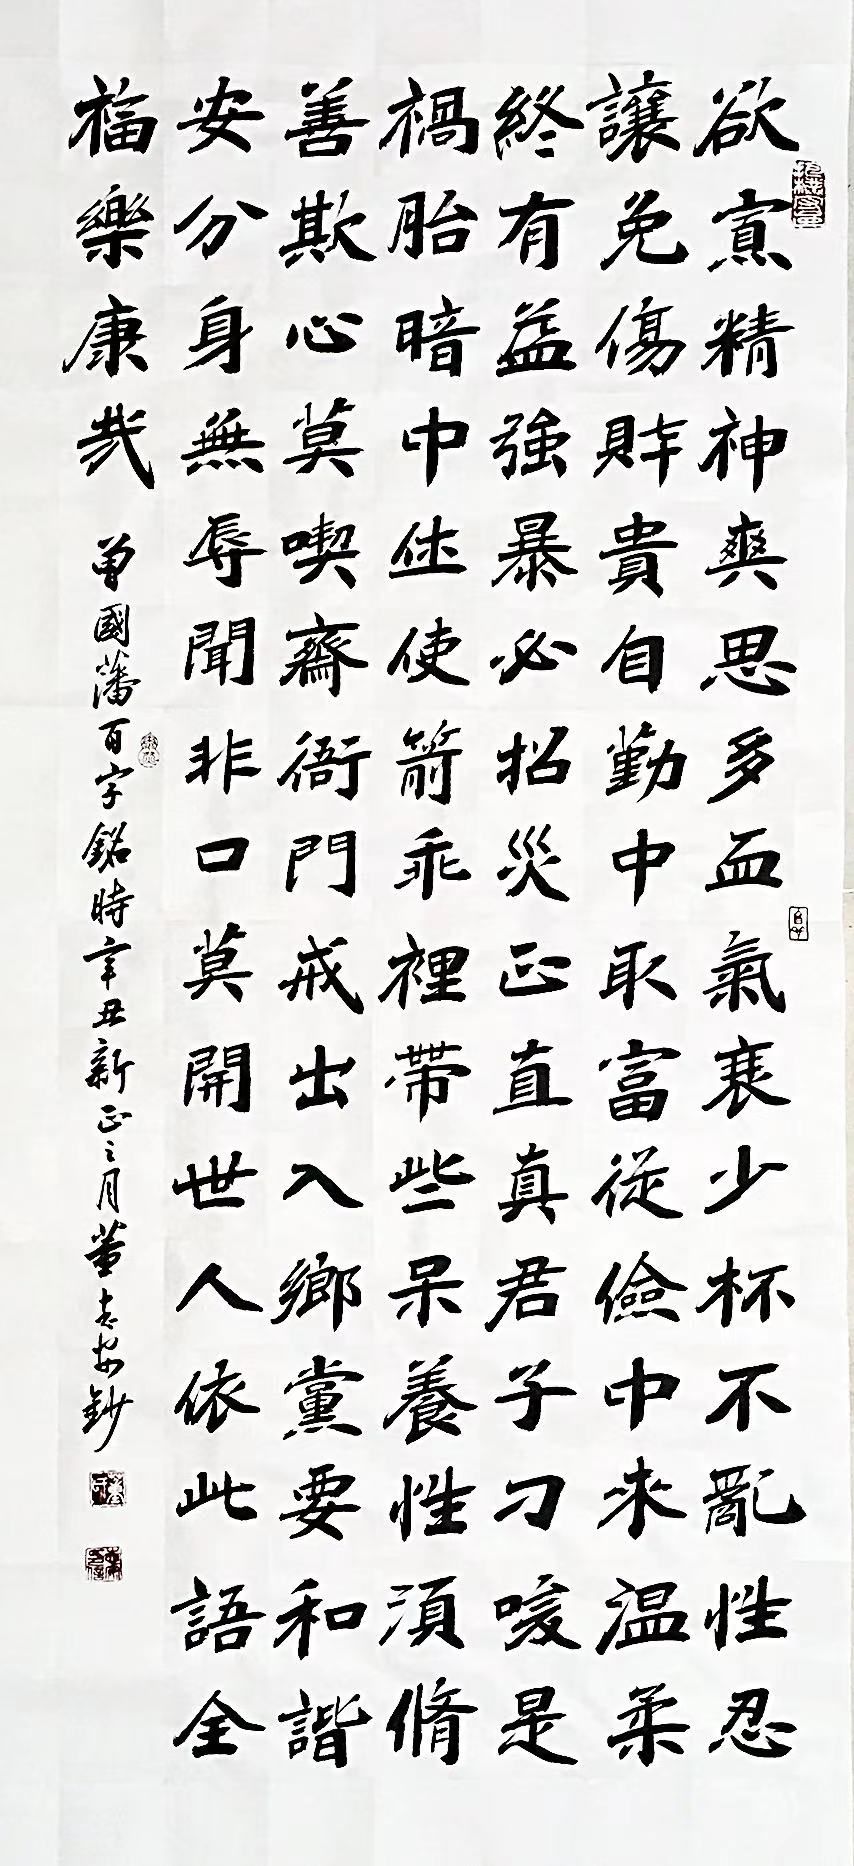 欲寡精神爽思多血氣衰少杯不亂性忍
讓免傷財貴自勤中取富從儉中來温柔
終有益強暴必招災正直真君子刁唆是
禍胎暗中休使箭乖裡帶些呆養性須脩
善欺心莫喫齋衙門戒出入鄉黨要和諧
安分身無辱聞非口莫開世人依此語全
福樂康哉
曾國藩百字銘時辛丑新正之月董志安鈔